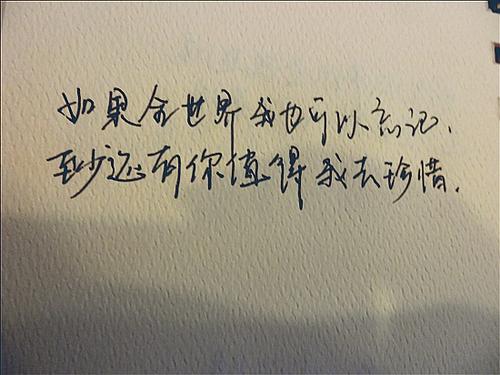 如果全世界我也可以忘记，
至少还有你值得我去珍惜．